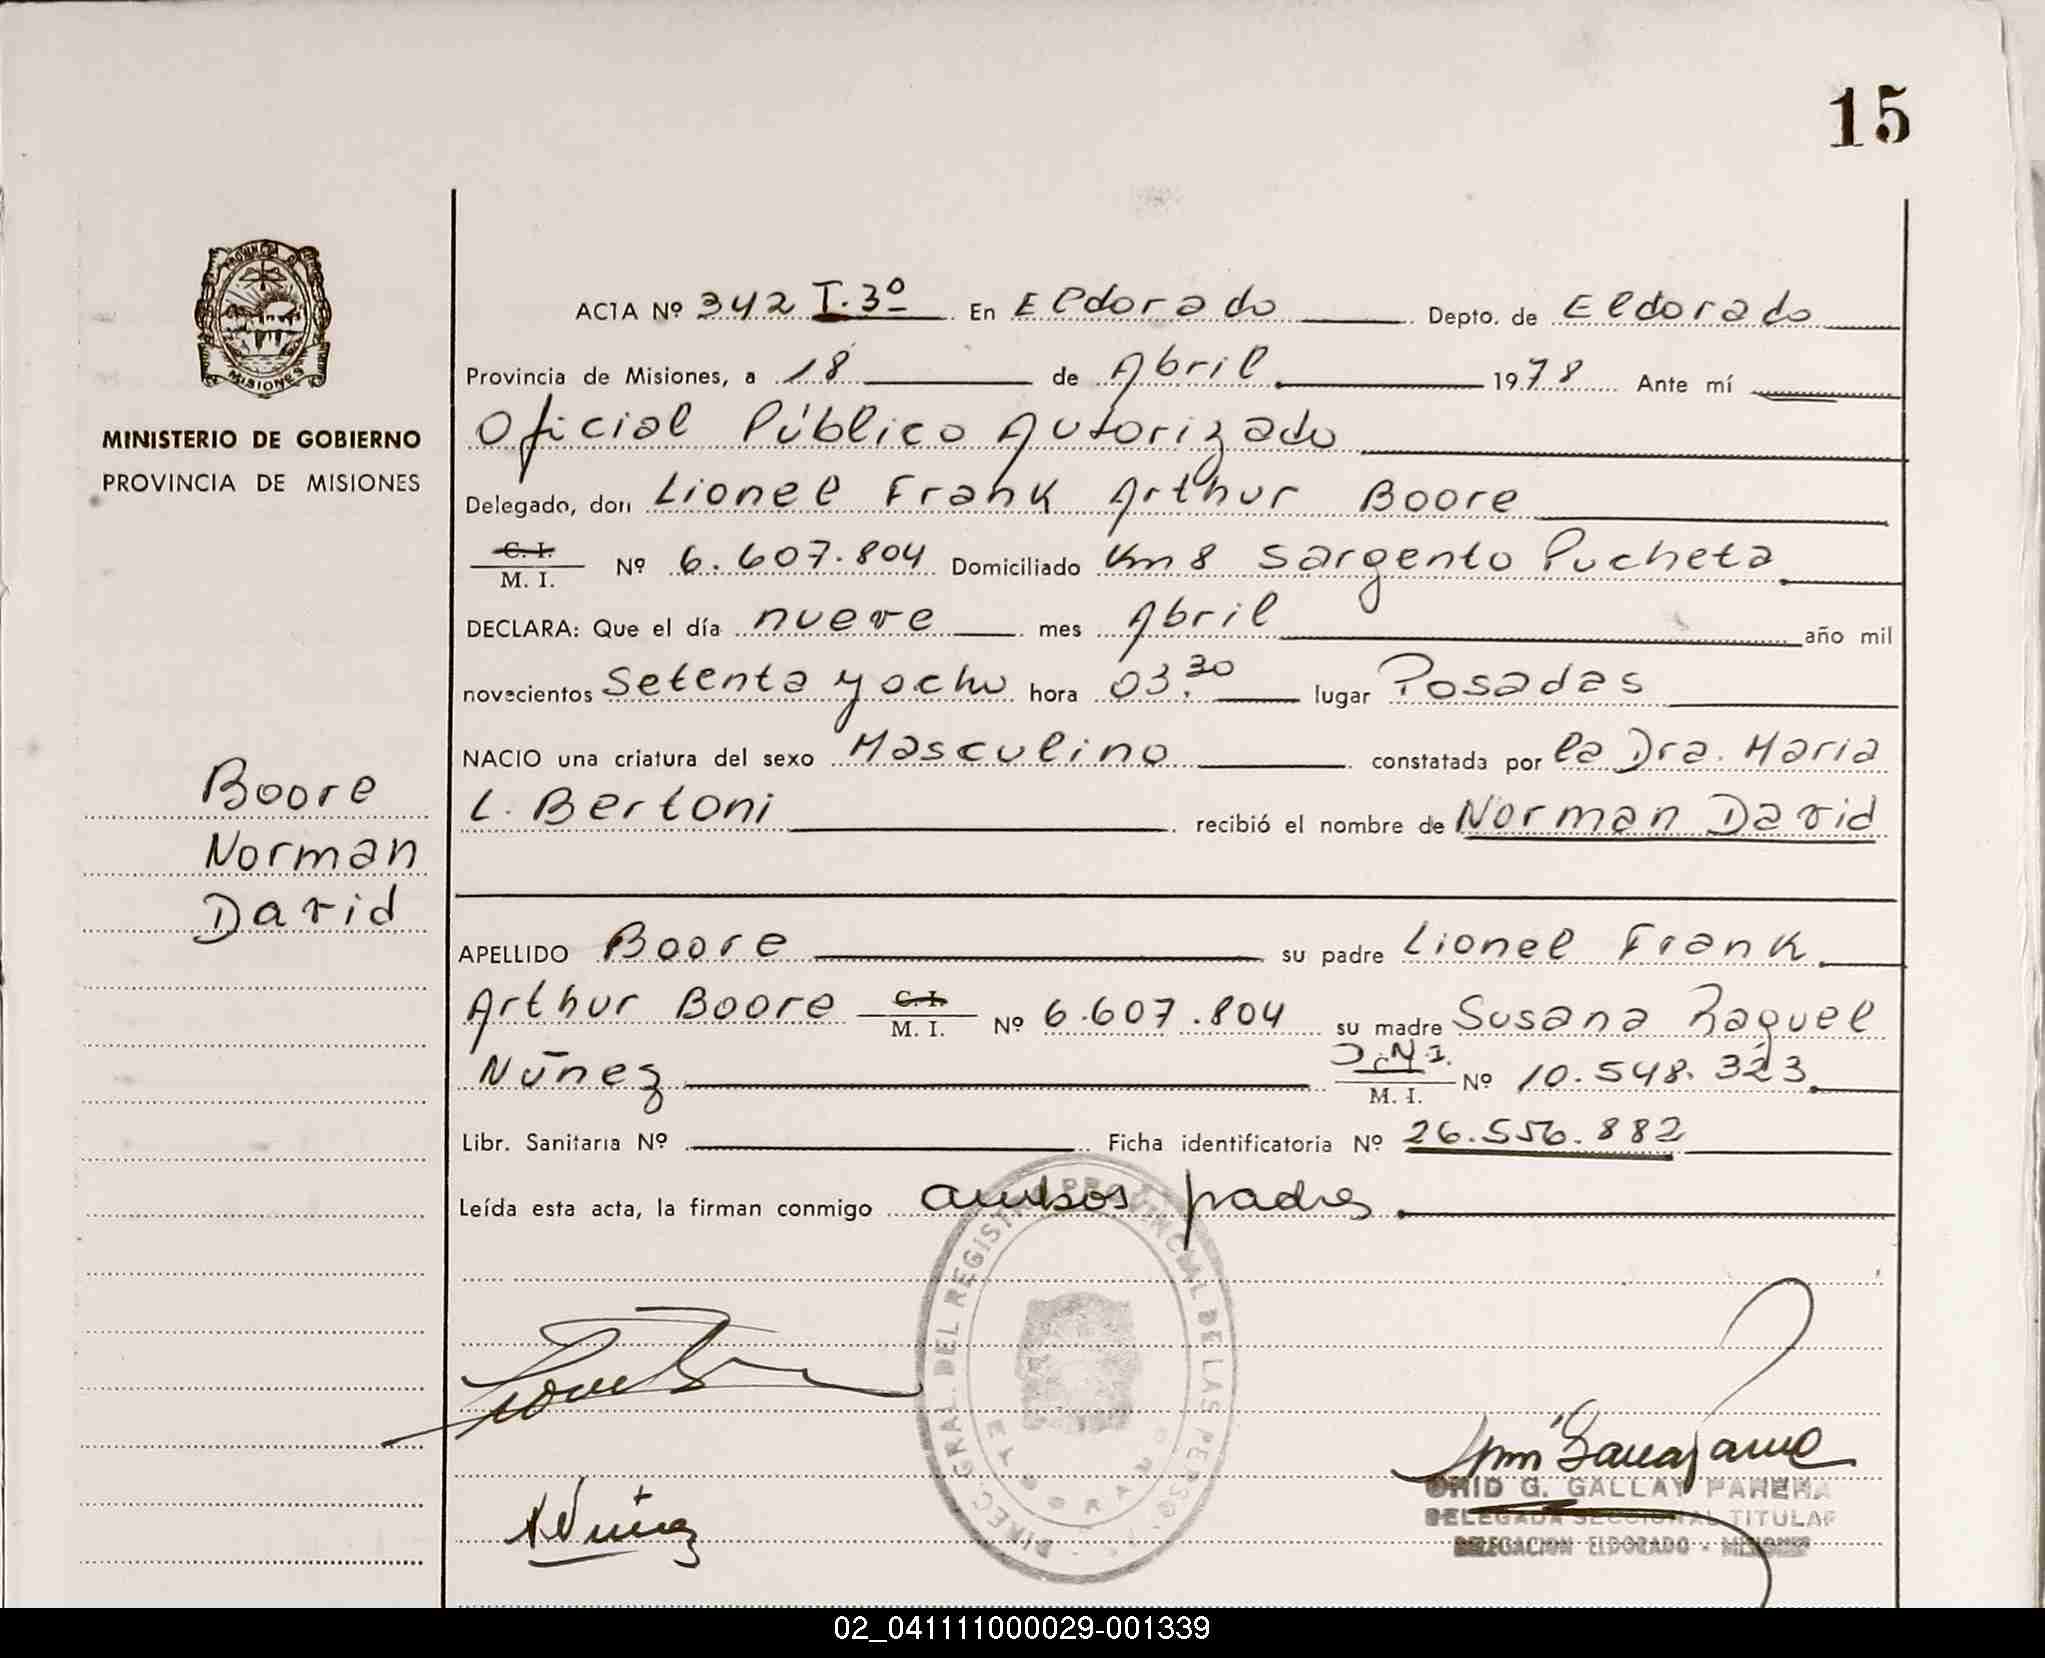 15
PROVINCIA DE
MISIONES
MINISTERIO DE GOBIERNO
PROVINCIA DE MISIONES
Boore
Norman
David
ACTA Nº 342 T. 3º En Eldorado Depto. de Eldorado
Provincia de Misiones, a 18 de Abril 1978 Ante mí
Oficial Público Autorizado
Delegado, don Lionel Frank Arthur Boore
C. I.
M. I. Nº 6.607.804 Domiciliado Km 8 Sargento Pucheta
DECLARA: Que el día nueve mes Abril año mil
novecientos Setenta y ocho hora 03.30 lugar Posadas
NACIO una criatura del sexo Masculino constatada por la Dra. Maria
L. Bertoni recibió el nombre de Norman David
APELLIDO Boore su padre Lionel Frank
Arthur Boore C. I. M. I. Nº 6.607.804 su madre Susana Raquel
Núñez D.N.I. M. I. Nº 10.548.323
Libr. Sanitaria Nº Ficha identificatoria Nº 26.556.882
Leída esta acta, la firman conmigo ambos padres
DIREC. GRAL. DEL REGISTRO PROVINCIAL DE LAS PERSO
ELDORADO
Núñez
G. GALLAY PARERA
DELEGADA SECCIONAL TITULAR
DELEGACION ELDORADO - MISIONES
02_041111000029-001339